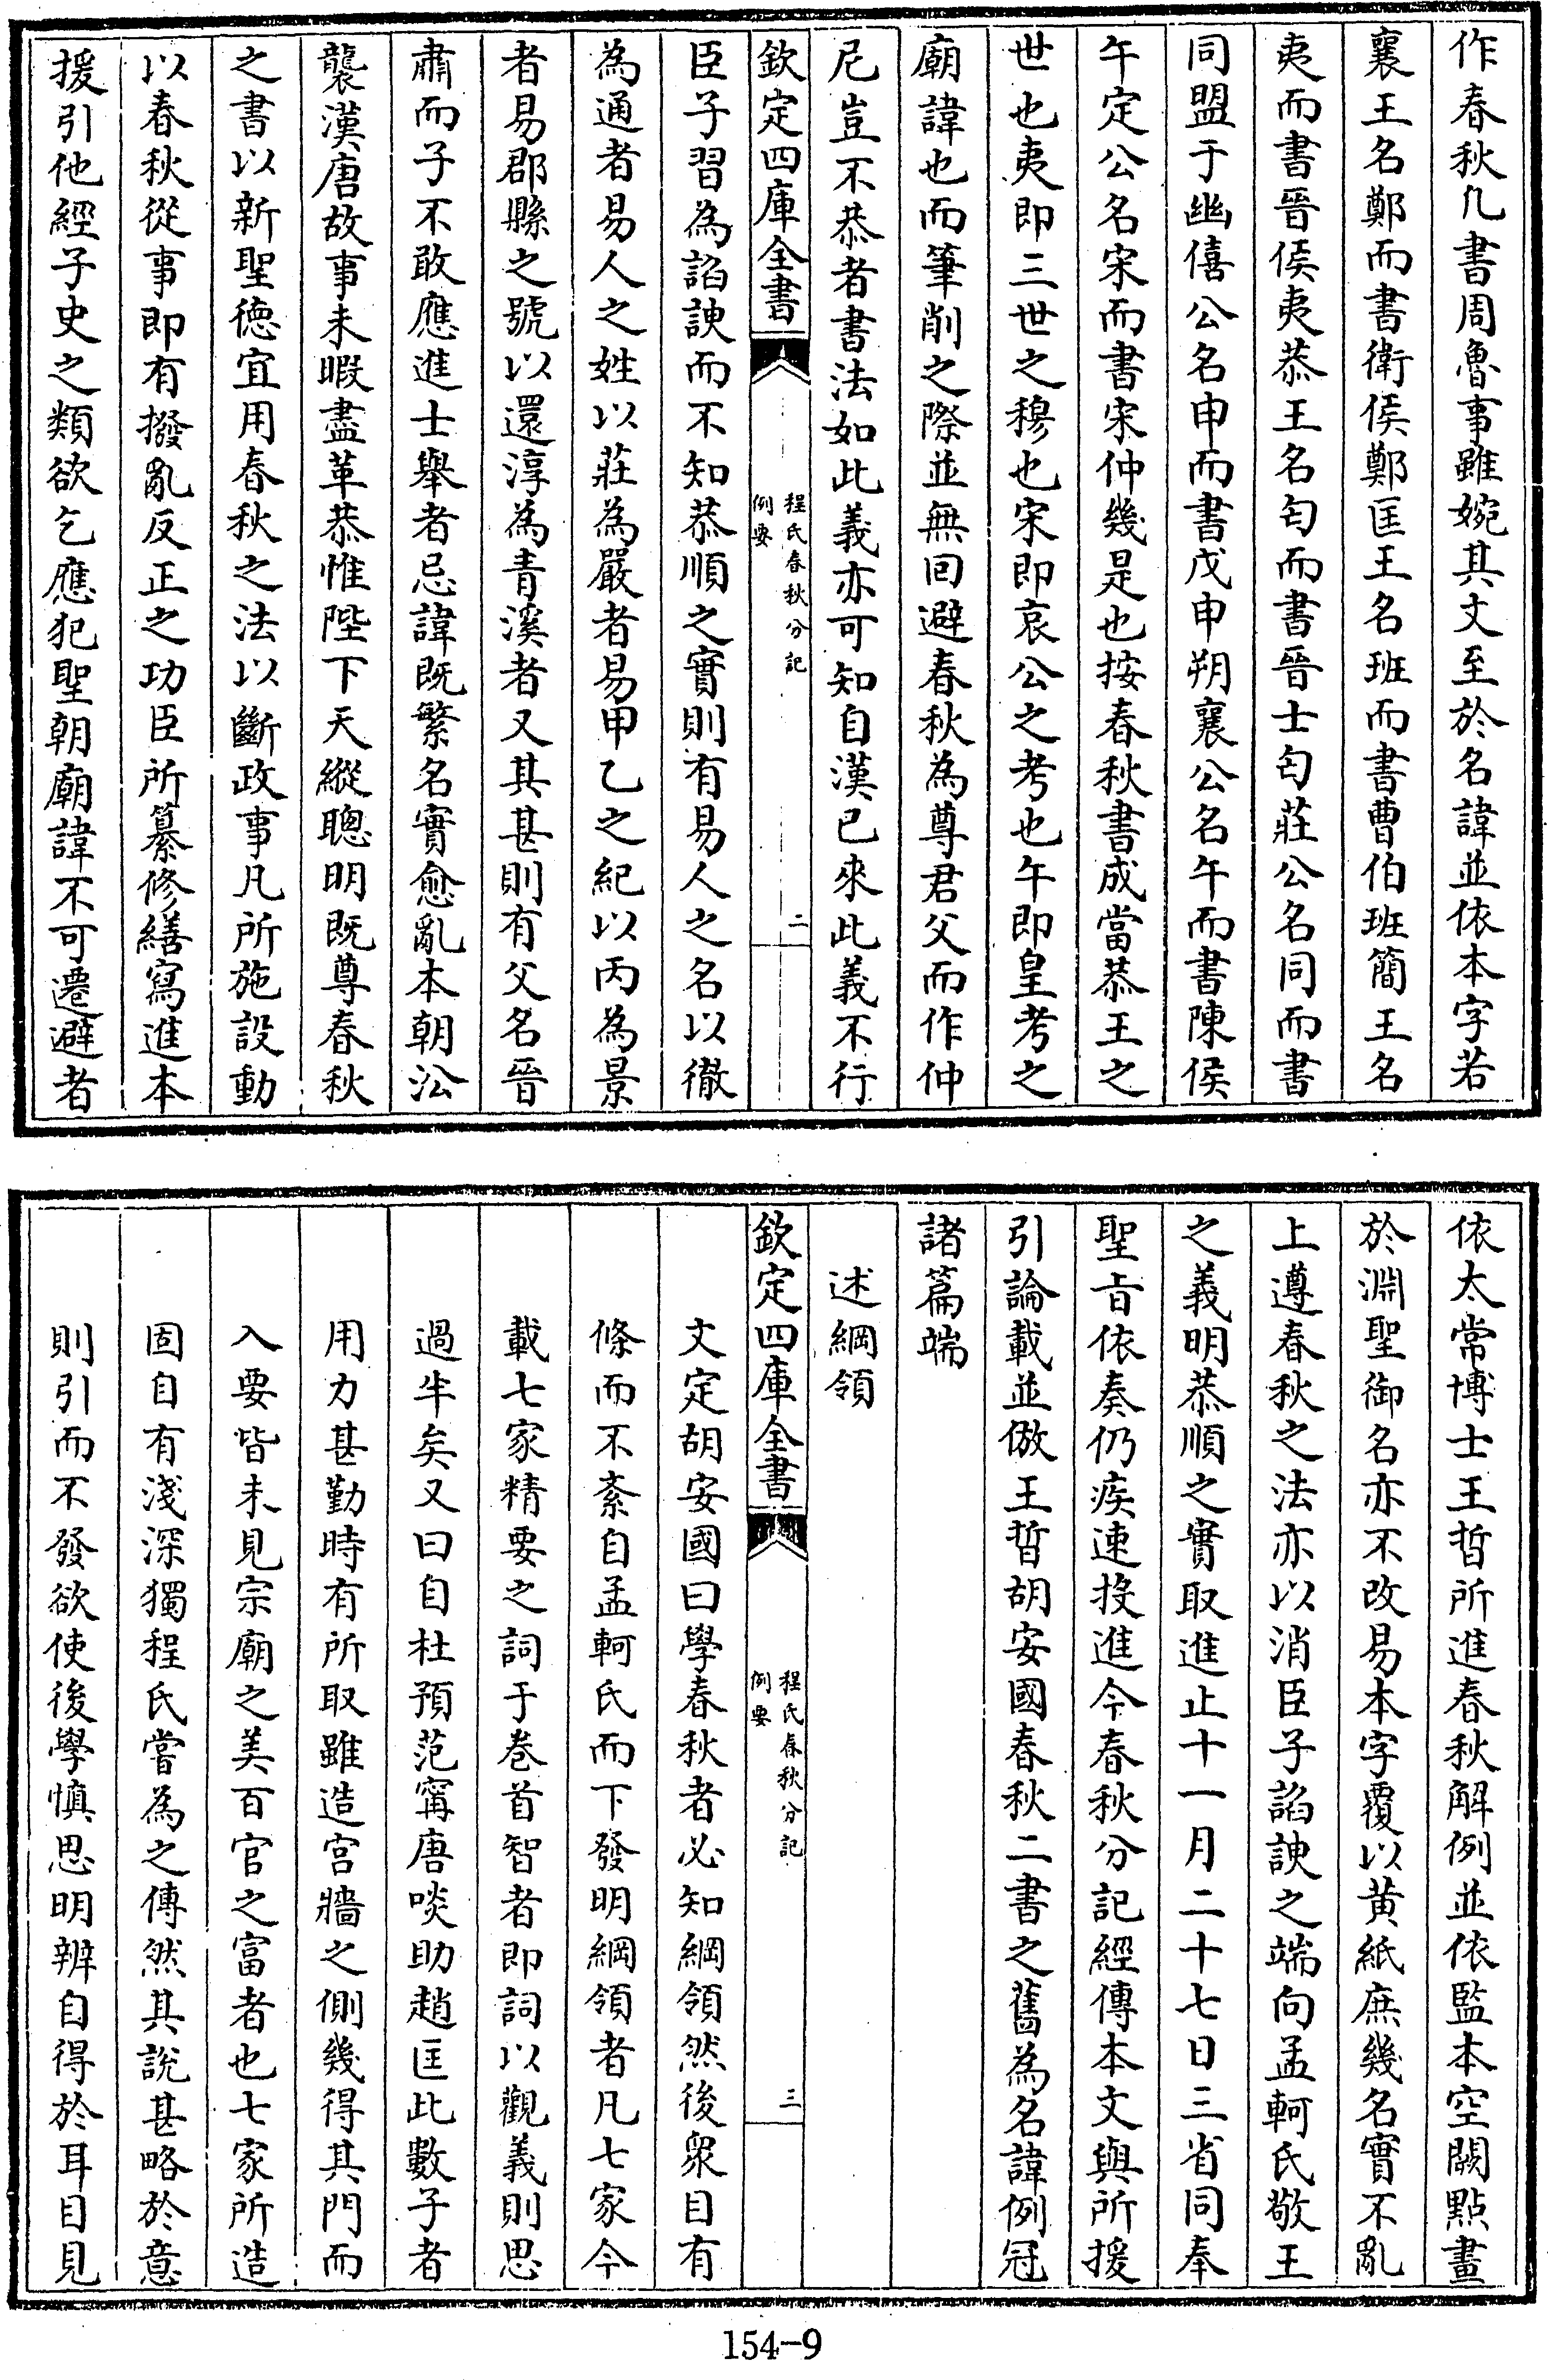 作春秋凡書周魯事雖婉其文至於名諱並依本字若
襄王名鄭而書衛侯鄭匡王名班而書曹伯班簡王名
夷而書晉侯夷恭王名匄而書晉士匄莊公名同而書
同盟于幽僖公名申而書戊申朔襄公名午而書陳侯
午定公名宋而書宋仲幾是也按春秋書成當恭王之
世也夷即三世之穆也宋即哀公之考也午即皇考之
廟諱也而筆削之際並無回避春秋為尊君父而作仲
尼豈不恭者書法如此義亦可知自漢已來此義不行
欽定四庫全書
程氏春秋分記
例要
二
臣子習為諂諛而不知恭順之實則有易人之名以徹
為通者易人之姓以莊為嚴者易甲乙之紀以丙為景
者易郡縣之號以還淳為青溪者又其甚則有父名晉
肅而子不敢應進士舉者忌諱既繁名實愈亂本朝㳂
襲漢唐故事未暇盡革恭惟陛下天縱聰明既尊春秋
之書以新聖德宜用春秋之法以斷政事凡所施設動
以春秋從事即有撥亂反正之功臣所纂修繕寫進本
援引他經子史之類欲乞應犯聖朝廟諱不可遷避者
依太常博士王晳所進春秋解例並依監本空闕點畫
於淵聖御名亦不改易本字覆以黃紙庶幾名實不亂
上遵春秋之法亦以消臣子諂諛之端向孟軻氏敬王
之義明恭順之實取進止十一月二十七日三省同奉
聖旨依奏仍疾速投進今春秋分記經傳本文與所援
引論載並倣王晳胡安國春秋二書之舊為名諱例冠
諸篇端
述綱領
欽定四庫全書
程氏春秋分記
例要
三
文定胡安國曰學春秋者必知綱領然後衆目有
條而不紊自孟軻氏而下發明綱領者凡七家今
載七家精要之詞于卷首智者即詞以觀義則思
過半矣又曰自杜預范甯唐啖助趙匡此數子者
用力甚勤時有所取雖造宮牆之側幾得其門而
入要皆未見宗廟之美百官之富者也七家所造
固自有淺深獨程氏嘗為之傳然其說甚略於意
則引而不發欲使後學慎思明辨自得於耳目見
154-9